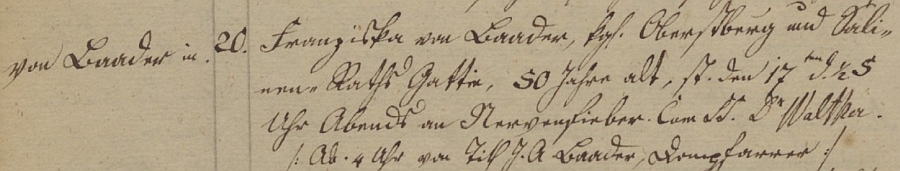 von Baader in. 20. Franziska von Baader, kgl. Oberstberg und Sali„
nen„Raths Gattin, 50 Jahre alt, st. den 17ten d. ½5
Uhr Abends an Nervenfieber. Com H. Dr Walther.
/: Ab. 4 Uhr von Tit J. A Baader, Dompfarrer :/